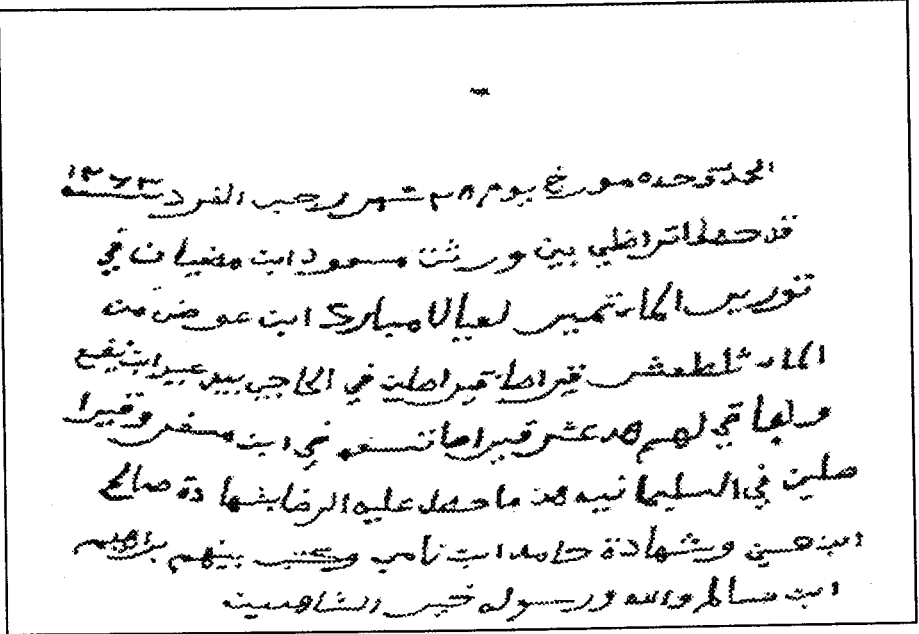 الحمد لله وحده مورخ يوم ٢٨ شهر رجب الفرد ١٢٧٣
قد حصل التراضي بين ورثت مسعود ابن مضيان في
لعيال مبارك ابن عوض من
الما ثلطعشر قيراط قيراطين في الحاجي بيد عبيد ابن نفيع
لهم هدعشر قيراط تسعه في ابن مسفر وقيرا
طين في السليمانيه هذ ما حصل عليه الرضا بشهادة صالح
ابن حسين وشهادة حامد ابن نامي وكتب بينهم براهيم
ابن سالم والله ورسوله خير الشاهدين